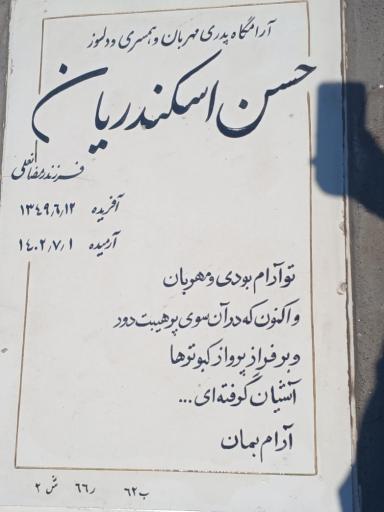 آرامگاه پدری مهربان و همسری و دلسوز
حسن اسکندریان
فرزند رمضانعلی
آفریده ۱۳۴۹٫۶٫۱۲
آرمیده ۱۴۰۲٫۷٫۱
تو آرام بودی و مهربان
و اکنون که در آن سوی پر هیبت دور
و بر فراز پرواز کبوترها
آشیان گرفته‌ای ...
آرام بمان
ب ۶۲ ر ۶۶ ش ۲